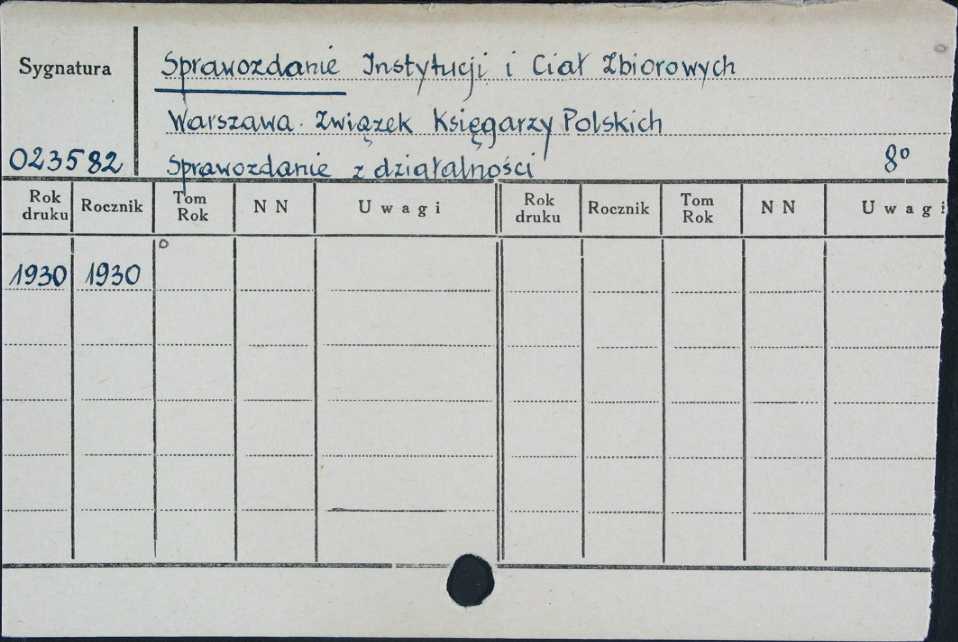 Sygnatura
Sprawozdanie Instytucji i Ciał Zbiorowych
Warszawa. Związek Księgarzy Polskich
023582 Sprawozdanie z działalności 8º
Rok druku Rocznik Tom Rok N N Uwagi Rok druku Rocznik Tom Rok N N Uwagi
1930 1930